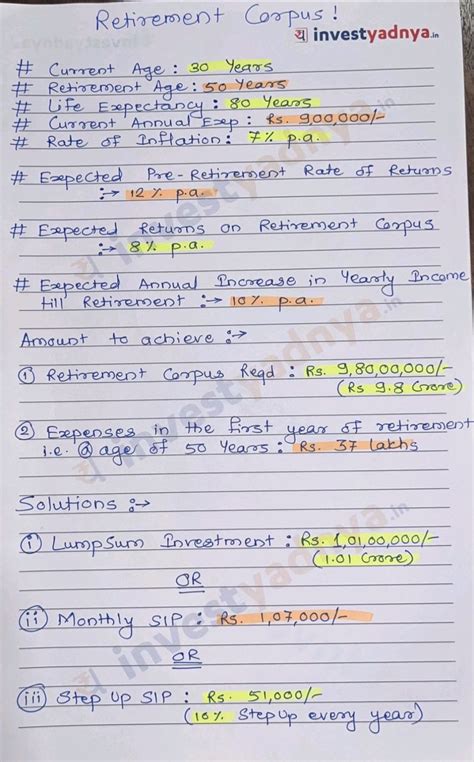 Retirement Corpus!
investyadnya.in
# Current Age : 30 Years
# Retirement Age : 50 Years
# Life Expectancy : 80 Years
# Current Annual Exp : Rs. 900,000/-
# Rate of Inflation : 7% p.a.
# Expected Pre-Retirement Rate of Returns
:→ 12% p.a.
# Expected Returns on Retirement Corpus
:→ 8% p.a.
# Expected Annual Increase in Yearly Income
till Retirement :→ 10% p.a.
Amount to achieve :→
① Retirement Corpus Reqd : Rs. 9,80,00,000/-
(Rs 9.8 Crore)
② Expenses in the first year of retirement
i.e. @ age of 50 Years : Rs. 37 lakhs
Solutions :→
(i) Lumpsum Investment : Rs. 1,01,00,000/-
(1.01 Crore)
OR
(ii) Monthly SIP : Rs. 1,07,000/-
OR
(iii) Step Up SIP : Rs. 51,000/-
(10% Step Up every year)